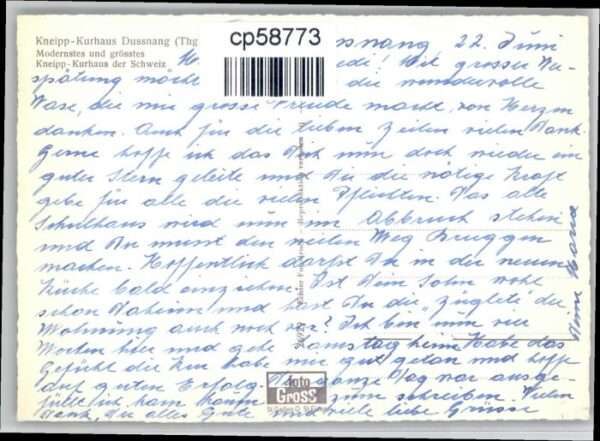 Kneipp-Kurhaus Dussnang (Thg
Modernstes und grösstes
Kneipp-Kurhaus der Schweiz
cp58773
snang, 22. Juni
Mit grosser Ver-
spätung möchte die wundervolle
Vase, die mir grosse Freude macht, von Herzen
danken. Auch für die lieben Zeilen vielen Dank.
Gerne hoffe ich das Dich nun doch wieder ein
guter Stern geleite und Dir die nötige Kraft
gebe für alle die vielen Pflichten. Das alte
Schulhaus wird nun im Abbruch stehen
und Du musst den weiten Weg Bruggen
machen. Hoffentlich darfst Du in die neue
Küche bald einziehen. Ist Dein Sohn wohl
schon daheim und hast Du die „Züglete" der
Wohnung auch noch vor? Ich bin nun vier
Wochen hier und gehe Samstag heim. Habe das
Gefühl die Kur habe mir gut getan und hoffe
auf guten Erfolg. Der ganze Tag war ausge-
füllt, ich kam kaum zum schreiben. Vielen
Dank, Dir alles Gute und viele liebe Grüsse
Deine Maria
foto
Gross